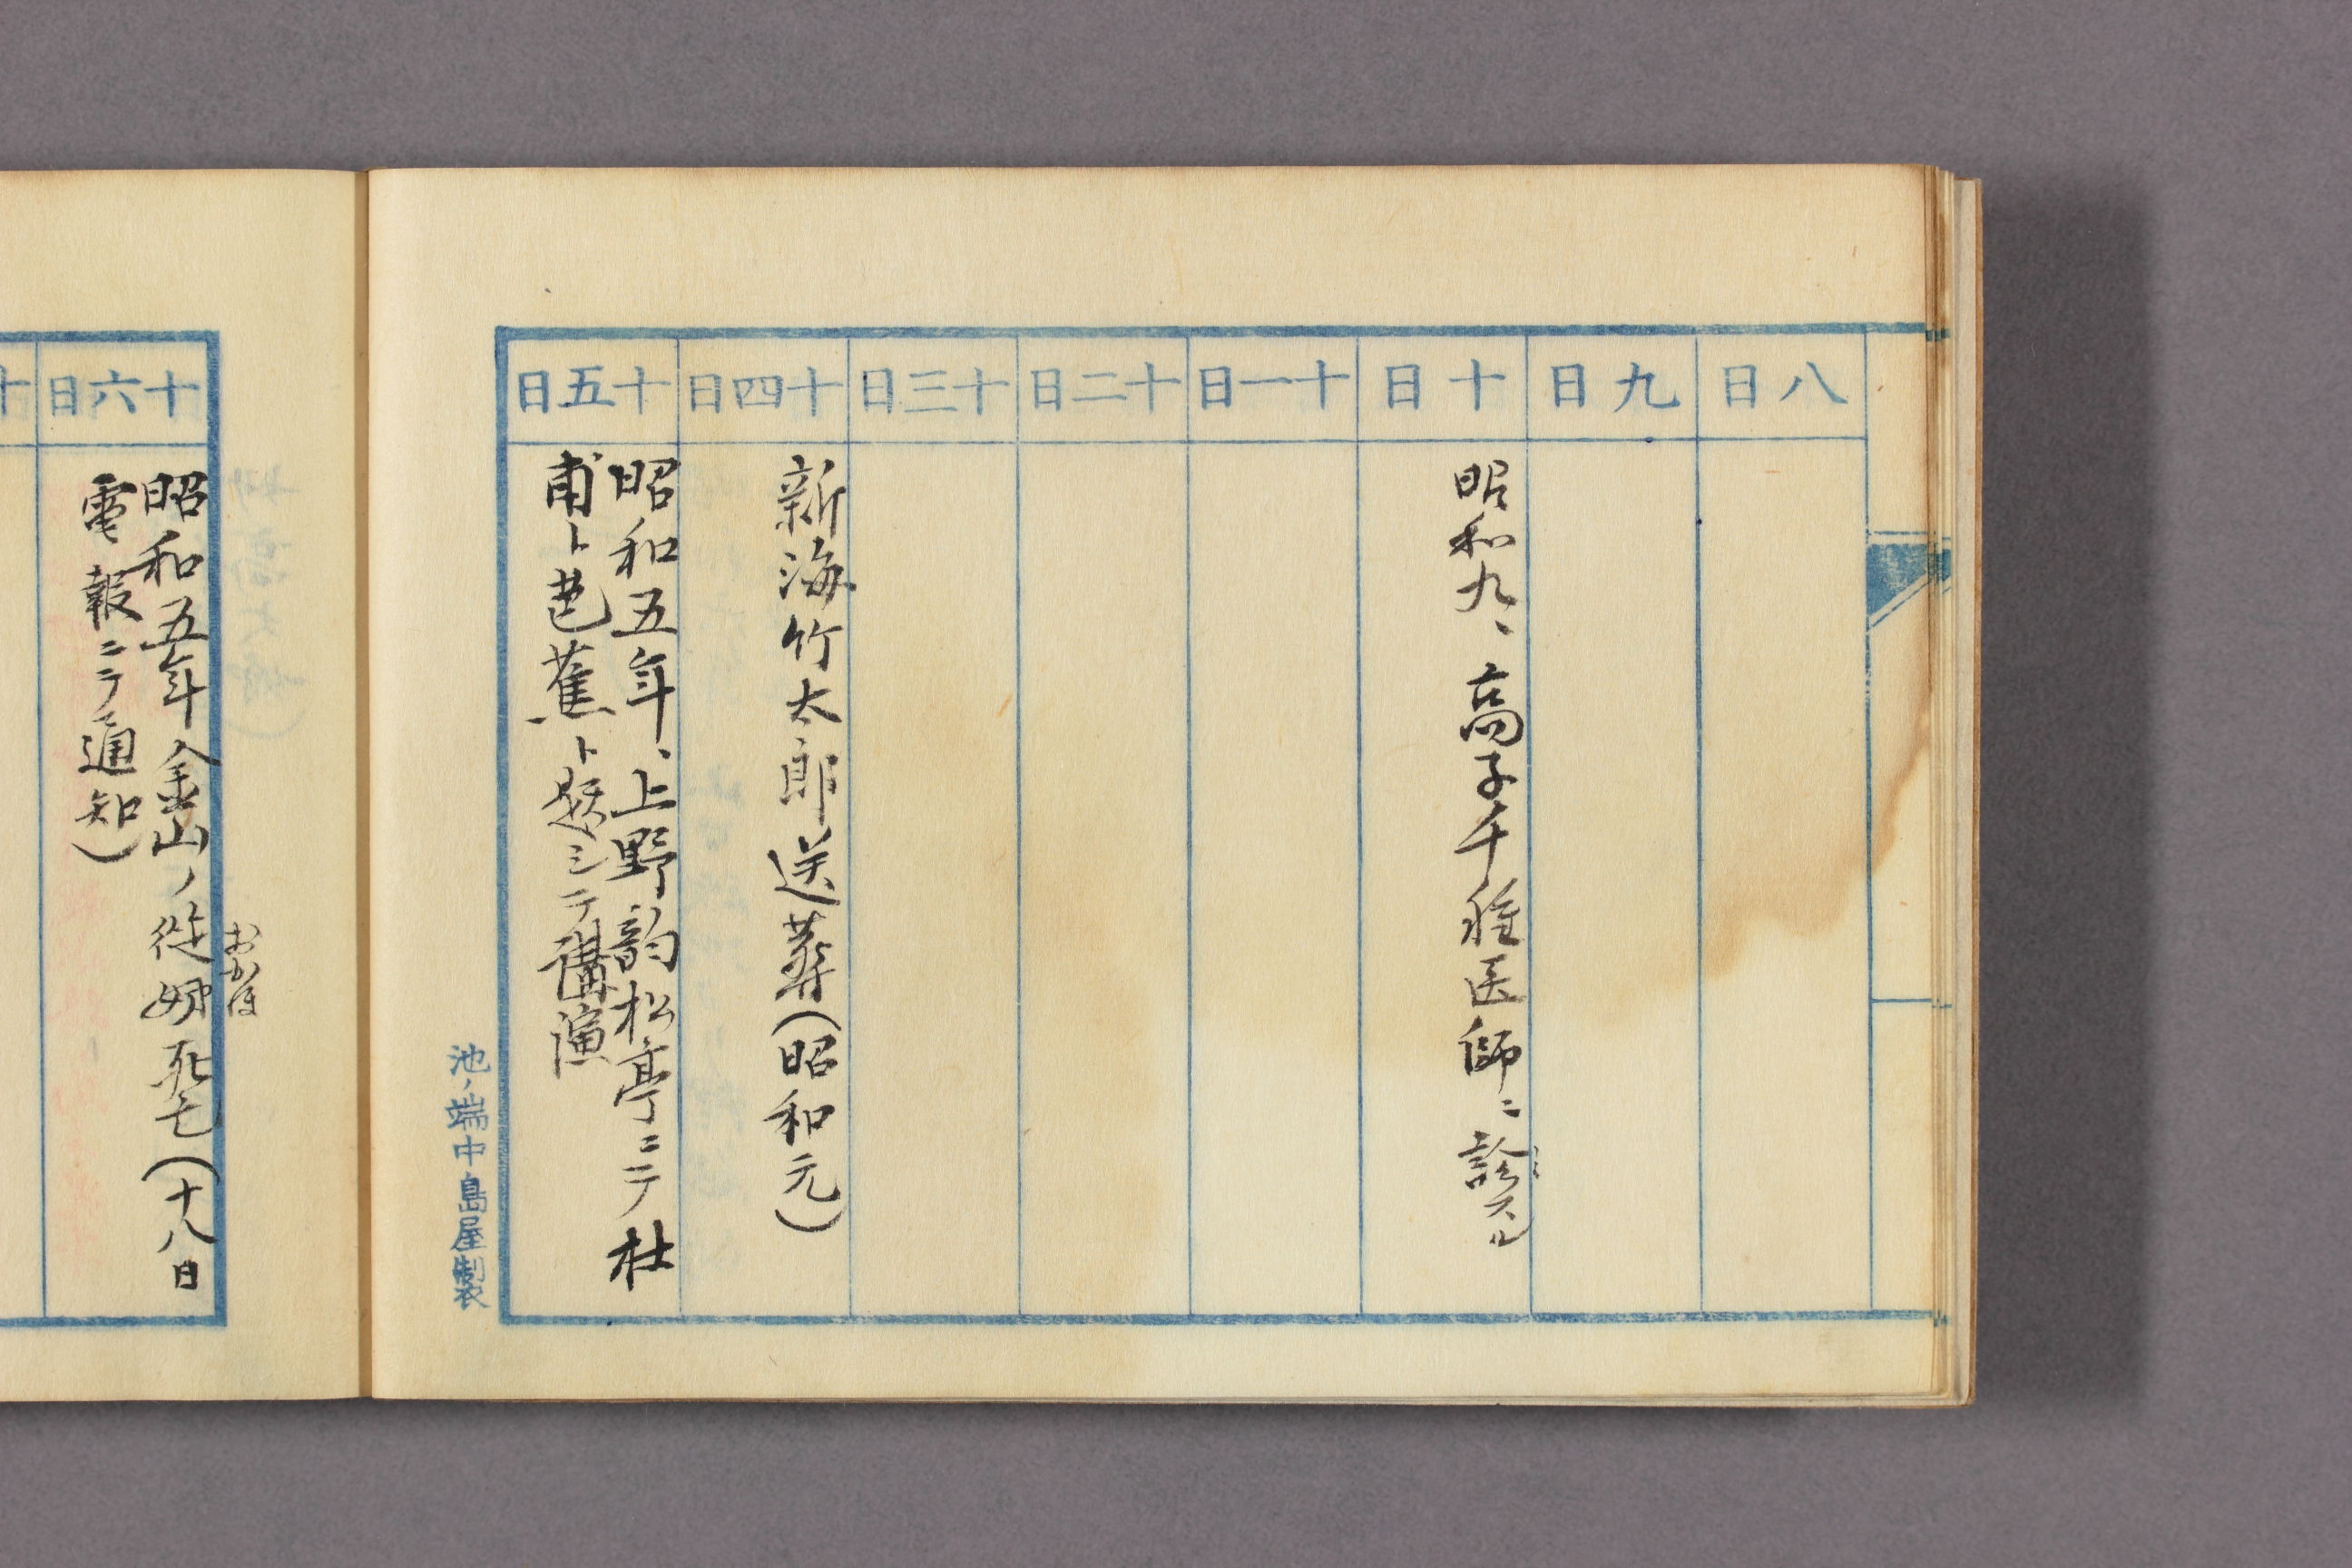 八日
九日
十日
昭和九、高子千雅医師ニ診スル
十一日
十二日
十三日
十四日
新海竹太郎送葬(昭和元)
十五日
昭和五年、上野韵松亭ニテ杜
甫ト芭蕉ト題シテ講演
池ノ端中島屋製
十六日
おかほ
昭和五年金山ノ従姉死亡(十八日
電報ニテ通知)
十